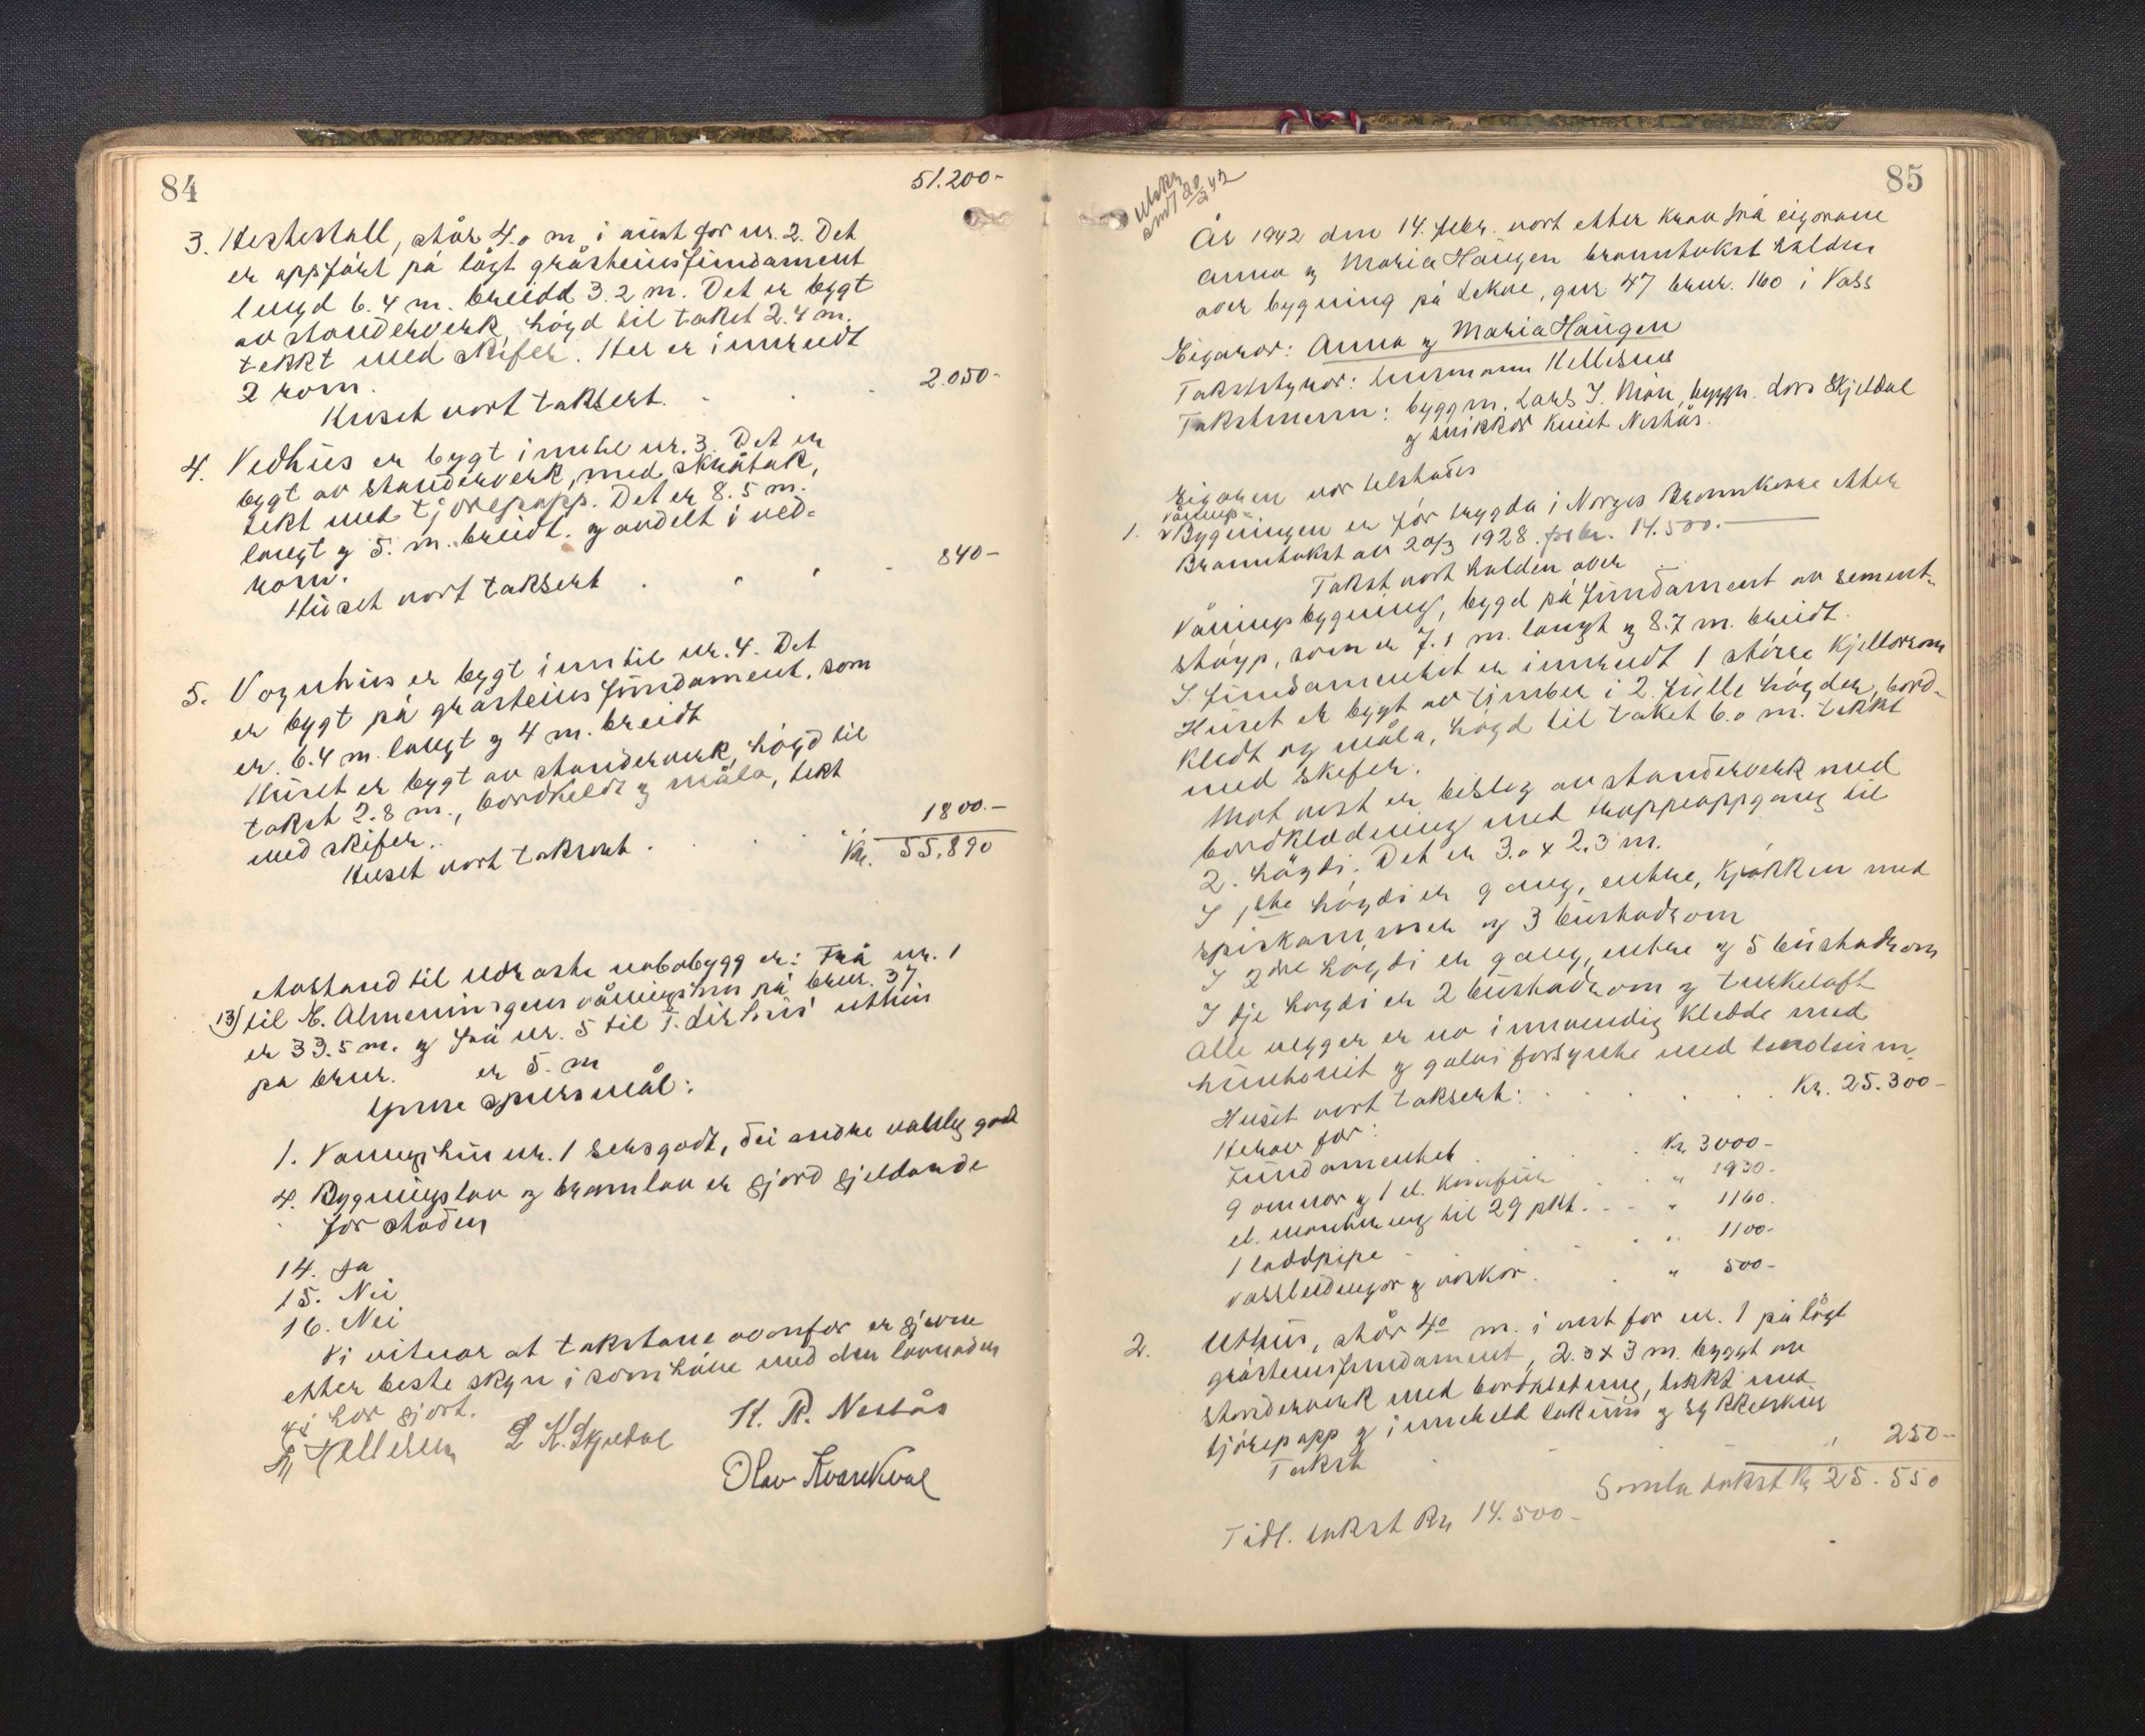 84
51.200-
3. Hestestall, står 4.0 m. i aust for nr. 2. Det
er oppført på lågt gråsteinsfundament
lengd 6.4 m. breidd 3.2 m. Det er bygt
av standerverk, høgd til taket 2.4 m.
tekkt med skifer. Her er innreidt
2 rom.
Huset vart taksert. - - - 2.050-
4. Vedhus er bygt inntil nr. 3. Det er
bygt av standerverk, med skråtak,
tekt med tjørepapp. Det er 8.5 m.
langt og 5. m. breidt. og avdelt i ved-
rom.
Huset vort taksert . . . - 840-
5. Vognhus er bygt inntil nr. 4. Det
er bygt på gråsteins fundament, som
er. 6.4 m. langt og 4 m. breidt
Huset er bygt av standerverk, høgd til
taket 2.8 m., bordkledt og måla, tekt
med skifer. 1800.-
Huset vort taksert . . . Kr. 55.890
Avstand til næraste nabobygg er: Frå nr. 1
13) til M. Almenningens våningshus på brnr. 37
er 33.5 m. og frå nr. 5 til T. uthus
på brnr. er 5. m
Ymse spursmål:
1. Vaningshus nr. 1 sers godt, dei andre vanleg gode
4. Bygningslov og brannlov er gjord gjeldande
for staden
14. Ja
15. Nei
16. Nei
Vi vitnar at takstane ovanfor er gjevne
etter beste skyn i samhøve med den lovnaden
vi har gjort.
Hellesnes L K. Skjeldal K. R. Nestås
Olav Kvarekval
85
Utskr.
sendt 20/2 42
År 1942 den 14. febr. vort etter krav frå eigarane
Anna og Maria Haugen branntakst halden
over bygning på Lekve, gnr 47 brnr. 160 i Voss
Eigarar: Anna og Maria Haugen
Takststyrar: lensmann Hellesnes
Takstmenn: byggm. Lars J. Møn, byggm. Lars Skjeldal
og snikkar Knut Nestås.
Eigaren var tilstades
vånings-
1. Bygningen er før trygda i Norges Brannkasse etter
Branntakst av 20/3 1928 for kr. 14.500.-
Takst vort halden over
Våningsbygning, bygd på fundament av sement-
støyp, som er 7.1 m. langt og 8.7 m. breidt.
I fundamentet er innreidt 1 større kjellarrom
Huset er bygt av timber i 2. fulle høgder, bord-
kledt og måla, høgd til taket 6.0 m. tekkt
med skifer.
Mot vest er bislag av standerverk med
bordklædning med trappeoppgang til
2. høgdi. Det er 3.0 x 2.3 m.
I 1ste høgdi er gang, entre, kjøkken med
spiskammer og 3 bustadrom
I 2dre høgdi er gang, entre og 5 bustadrom
I 3je høgdi er 2 bustadrom og turkeloft
Alle vegger er no innvendig kledde med
huntonit og golvi forsynte med linoleum.
Huset vort taksert: . . . . Kr. 25.300-
Herav for:
Fundamentet . . . Kr. 3000-
9 omnar og 1 el. komfur . . " 1930.
el. montering til 29 pkt. - - " 1160.
1 loddpipe - - . " 1100-
vassleidingar og vaskar . . " 500-
2. Uthus, står 40 m. i aust for nr. 1 på lågt
gråsteinsfundament, 2.3 x 3 m. byggt av
standerverk med bordkledning, tekkt med
tjørepapp og inneheld lokum og sykkelskur
Takst - " 250-
Samla takst Kr 25.550
Tidl. takst Kr 14.500-